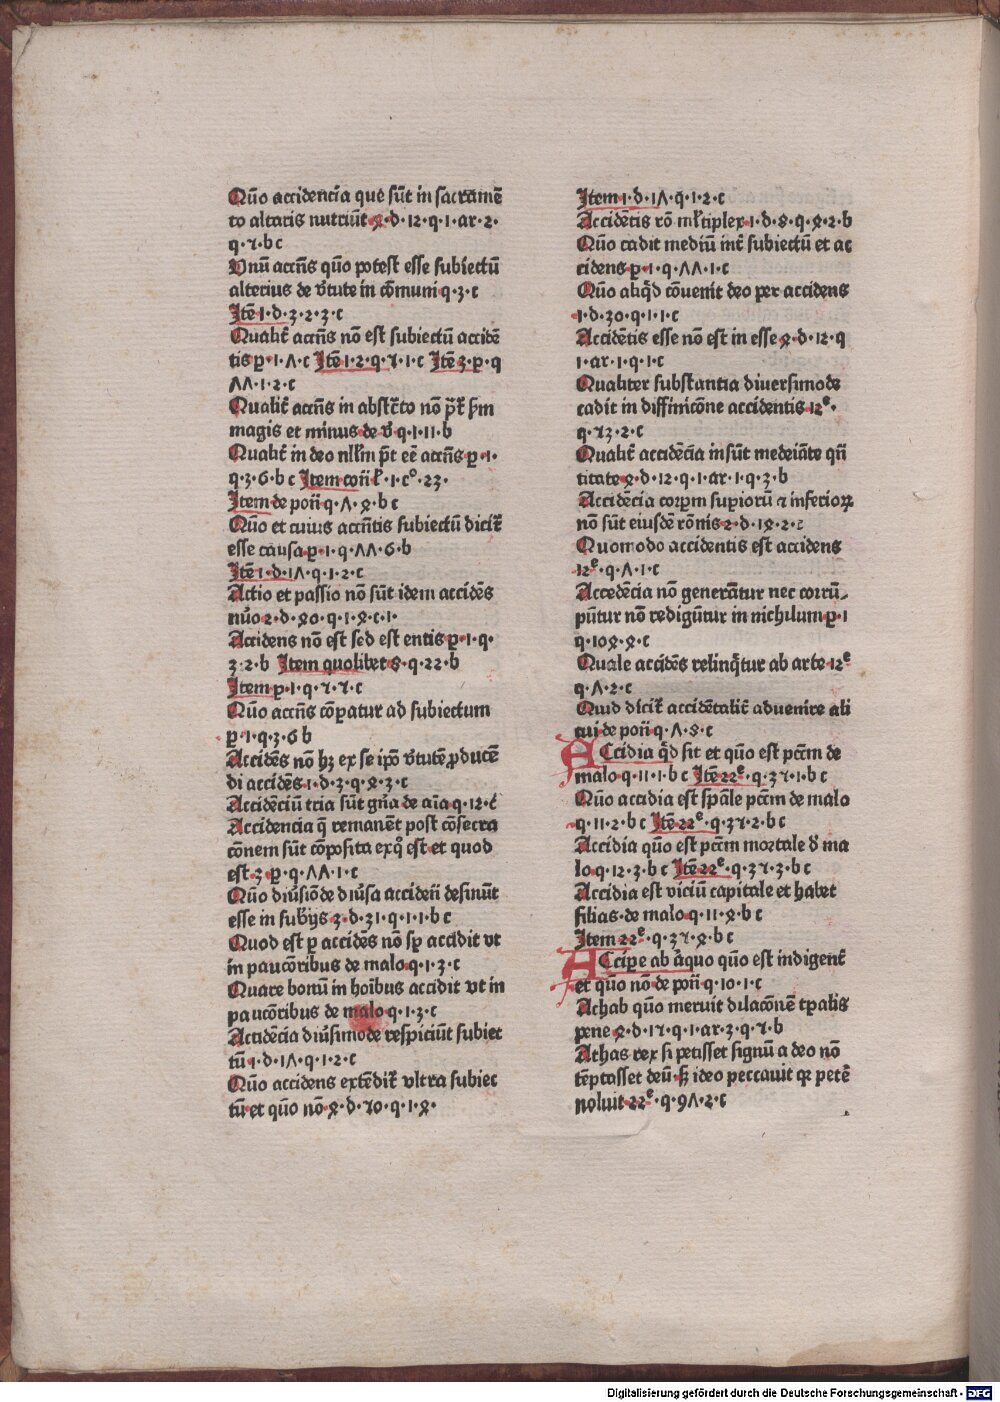 Quō accidencia que sūt in sacramē
to altaris nutriūt ꝝ·d·12·q·1·ar·2·
q·7·b c
Vnū accn̄s quō potest esse subiectū
alterius de v̓tute in cōmuni q·3·c
Itē 1·d·3·2·3·c
Qualit̄ accn̄s nō est subiectū accidē
tis p·1·Λ·c Itē 1·2·q·7·1·c Itē 3·p·q
ΛΛ·1·2·c
Qualit̄ accn̄s in abst̄cto nō
magis et minus de v̓ q·1·11·b
Qualit̄ in deo nllm̄ pt̄ eē accn̄s p·1·
q·3·6·b c Item con̄ 1·cº·23·
Item de pon̄ q·Λ·ꝝ·b c
Quō et cuius accn̄tis subiectū dicit̄
esse causa p·1·q·ΛΛ·6·b
Itē 1·d·1Λ·q·1·2·c
Actio et passio nō sūt idem accidēs
nūo 2·d·ꝝ0·q·1·ꝝ·c·1·
Accidens nō est sed est entis p·1·q·
3·2·b Item quolibet 8·q·22·b
Item p·1·q·7·7·c
Quō accn̄s cōꝑatur ad subiectum
p·1·q·3·6 b
Accidēs nō hꝫ ex se ip̄o v̓tutē ꝓducē
di accidēs 1·d·3·q·ꝝ·3·c
Accidēciū tria sūt gn̄a de aīa q·12·c
Accidencia q̄ remanēt post cōsecra
cōnem sūt cōposita ex qͦ est et quod
est 3·p·q·ΛΛ·1·c
Quō diūsiōe diūsa acciden̄ desinūt
esse in sub̓ijs 3·d·31·q·1·1·b c
Quod est ꝑ accidēs nō sp̄ accidit vt
in paucōribus de malo q·1·3·c
Quare bonū in hoībus accidit vt in
paucōribus de malo q·1·3·c
Accidēcia diūsimode respiciūt subiec
tū 1·d·1Λ·q·1·2·c
Quō accidens extēdit̄ vltra subiec
tū et quō nō ꝝ·d·70·q·1·ꝝ·
Item 1·d·1Λ·q·1·2·c
Accidētis rō ml̄tiplex 1·d·8·q·ꝝ·2·b
Quō cadit mediū int̄ subiectū et ac
cidens p·1·q·ΛΛ·1·c
Quō aliq̇d cōuenit deo per accidens
1·d·30·q·1·1·c
Accidētis esse nō est in esse ꝝ·d·12·q
1·ar·1·q·1·c
Qualiter substantia diuersimode
cadit in diffinicōne accidentis 12ᵉ·
q·73·2·c
Qualit̄ accidēcia insūt medeiāte qn̄
titate ꝝ·d·12·q·1·ar·1·q·3·b
Accidēcia corꝑm suꝑiorū ⁊ inferioꝝ
nō sūt eiusdē rōnis 2·d·1ꝝ·2·2
Quomodo accidentis est accidens
12ᵉ·q·Λ·1·c
Accedēcia nō generātur nec corrū
pūtur nō redigūtur in nichilum p·1
q·10ꝝ·ꝝ·c
Quale accidēs relinq̄tur ab arte 12ᵉ
q·Λ·2·c
Quid dicit̄ accidētalit̄ aduenire ali
cui de pon̄ q·Λ·8·c
ACcidia q̇d sit et quō est pctm̄ de
malo q·11·1·b c Itē 22ᵉ·q·37·1·b c
Quō accidia est sp̄ale pctm̄ de malo
q·11·2·b c Itē 22ᵉ·q·37·2·b c
Accidia quō est pctm̄ mortale d̓ ma
lo q·12·3·b c Itē 22ᵉ·q·37·3·b c
Accidia est viciū capitale et habet
filias de malo q·11·ꝝ·b c
Item 22ᵉ·q·37·ꝝ·b c
ACcipe ab aliquo quō est indigent̄
et quō nō de pon̄ q·10·1·c
Achab quō meruit dilacōnē tꝑalis
pene ꝝ·d·17·q·1·ar·3·q·7·b
Achas rex si petisset signū a deo nō
tēptasset deū sꝫ ideo peccauit qꝛ petē
noluit 22ᵉ·q·9Λ·2·c
Digitalisierung gefördert durch die Deutsche Forschungsgemeinschaft - DFG